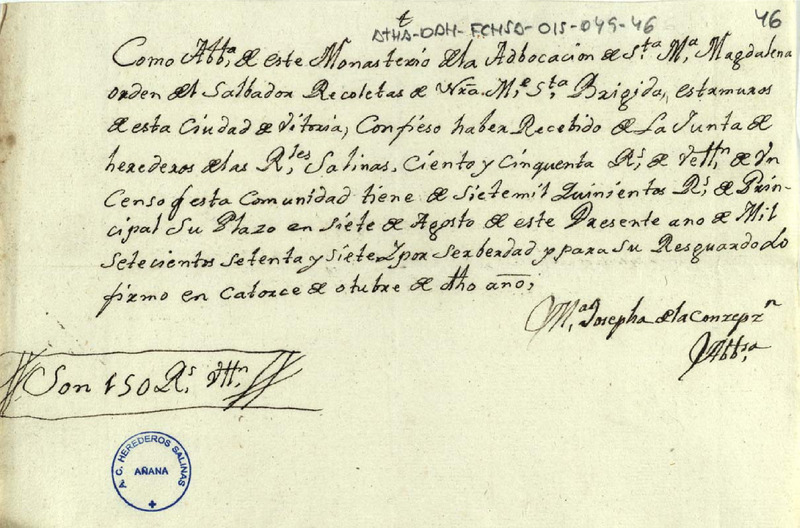 t
ATHA-DAH-FCHSA-015-049-46
46
Como Abb.ª de este Monasterio de la Advocacion de S.ta M.ª Magdalena
orden del Salbador Recoletas de Nra. M.e S.ta Brigida, estrmuros
de esta Ciudad de Vitoria, Confieso haber Recebido de La Junta de
herederos de las R.les Salinas, Ciento y Cinquenta R.s de Vell.n de Vn
Censo q esta Comunidad tiene de Sietemil Quinientos R.s de Prin-
cipal Su Plazo en Siete de Agosto de este Presente ano de Mil
Setecientos Setenta y Siete Y por Serberdad y para Su Resguardo Lo
firmo en Catorce de otubre de dho año;
M.ª Josepha de la Conzepz.n
Abb.sa
Son 150 R.s Vll.n
A. C. HEREDEROS SALINAS
AÑANA